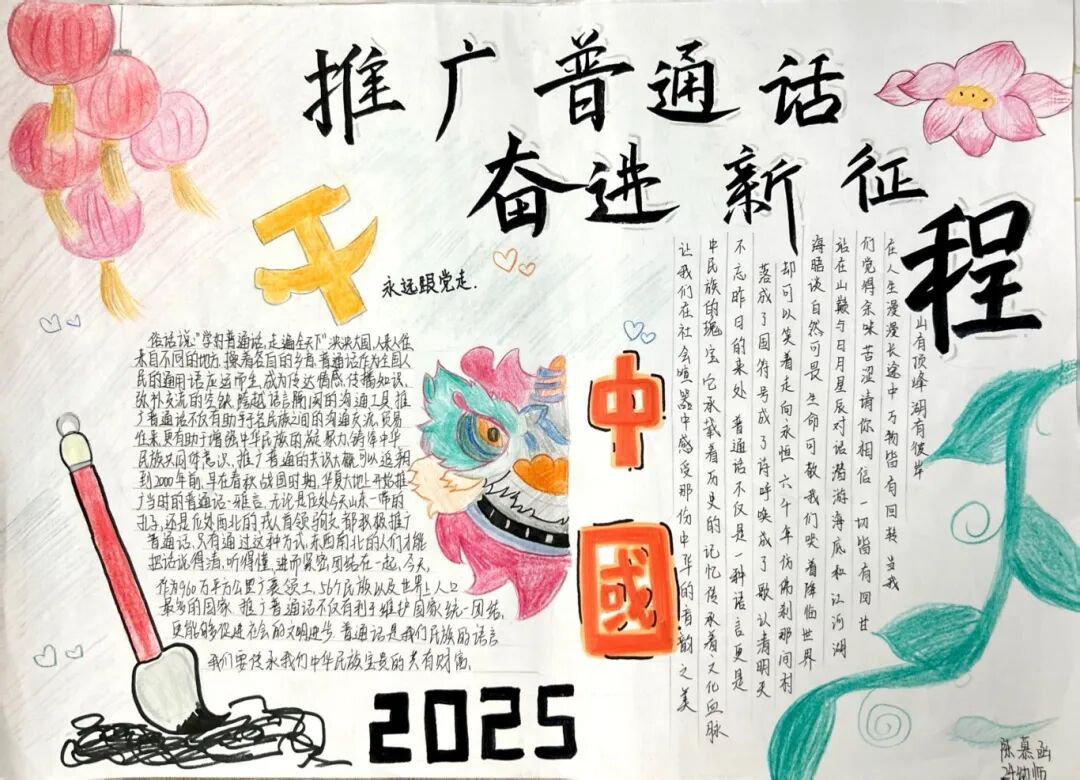 推广普通话
奋进新征程
永远跟党走.
俗话说:“学好普通话,走遍全天下”泱泱大国,人来人往
来自不同的地方,操着各自的乡音,普通话作为全国人
民的通用语应运而生,成为传达情感,传播知识,
弥补交流的空缺,跨越语言隔阂的沟通工具,推
广普通话不仅有助于各民族之间的沟通交流,贸易
往来,更有助于增强中华民族的凝聚力,铸牢中华
民族共同体意识,推广普通的共识大概可以追溯
到2000年前,早在春秋战国时期,华夏大地上开始推
广当时的普通话-雅言,无论是丘处今天山东一带的
孔子,还是丘处西北的戎人首领驹支都积极推广
普通话,只有通过这种方式,东西南北的人们才能
把话说得清,听得懂,进而紧密团结在一起,今天,
作为960万平方公里广袤领土,56个民族以及世界上人口
最多的国家 推广普通话不仅有利于维护国家统一团结,
更能够促进社会的文明进步 普通话是我们民族的语言
我们要传承我们中华民族宝贵的共有财富
中
國
山有顶峰湖有彼岸
在人生漫漫长途中万物皆有回转 当我
们觉得余味苦涩请你相信一切皆有回甘
站在山巅与日月星辰对话潜游海底和江河湖
海晤谈自然可畏 生命可敬我们哭着降临世界
却可以笑着走向永恒六千年仿佛刹那间村
落成了国符号成了诗呼唤成了歌认清明天
不忘昨日的来处 普通话不仅是一种语言更是
中民族的瑰宝它承载着历史的记忆传承着文化血脉
让我们在社会喧嚣中感受那份中华的音韵之美
2025
陈慕函
24幼师